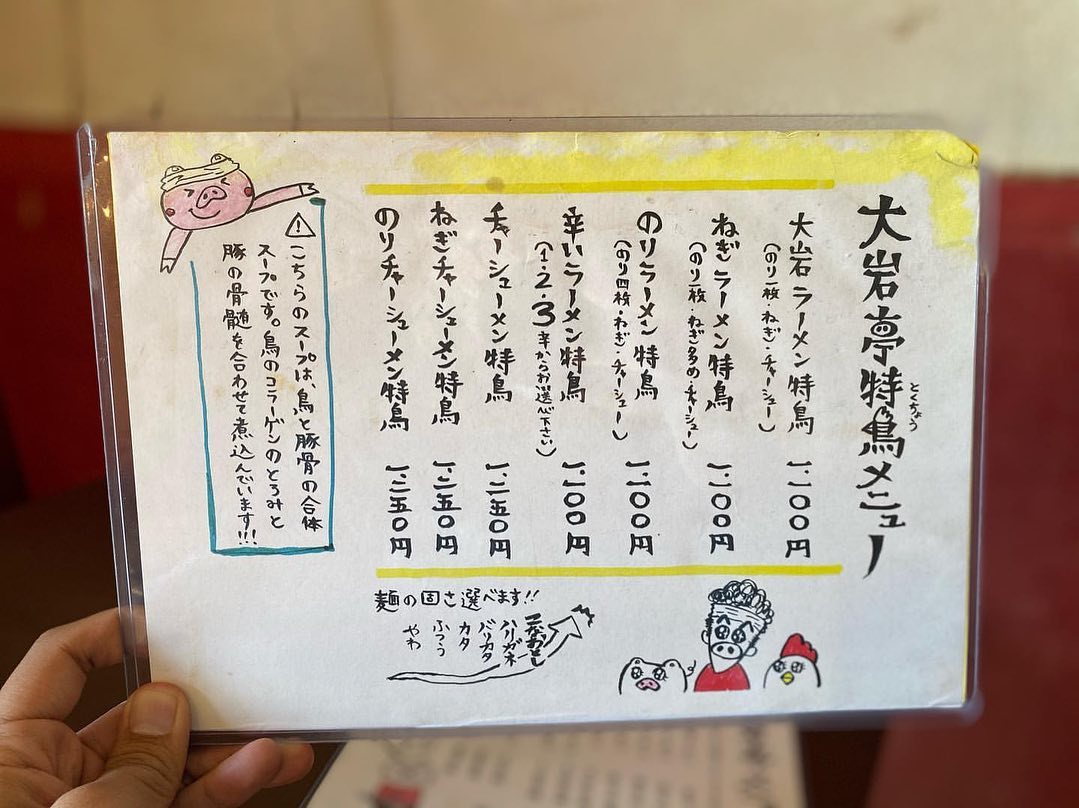 大岩亭特鳥メニュー
とくちょう
大岩ラーメン特鳥 一、一〇〇円
(のり一枚・ねぎ・チャーシュー)
ねぎラーメン特鳥 一、二〇〇円
(のり一枚・ねぎ多め・チャーシュー)
のりラーメン特鳥 一、二〇〇円
(のり四枚・ねぎ・チャーシュー)
辛いラーメン特鳥 一、二〇〇円
(1・2・3辛からお選び下さい)
チャーシューメン特鳥 一、三五〇円
ねぎチャーシューメン特鳥 一、三五〇円
のりチャーシューメン特鳥 一、三五〇円
こちらのスープは、鳥と豚骨の合体
スープです。鳥のコラーゲンのとろみと
豚の骨髄を合わせて煮込んでいます!!!
麺の固さ選べます!!
こなおとし
ハリガネ
バリカタ
カタ
ふつう
やわ